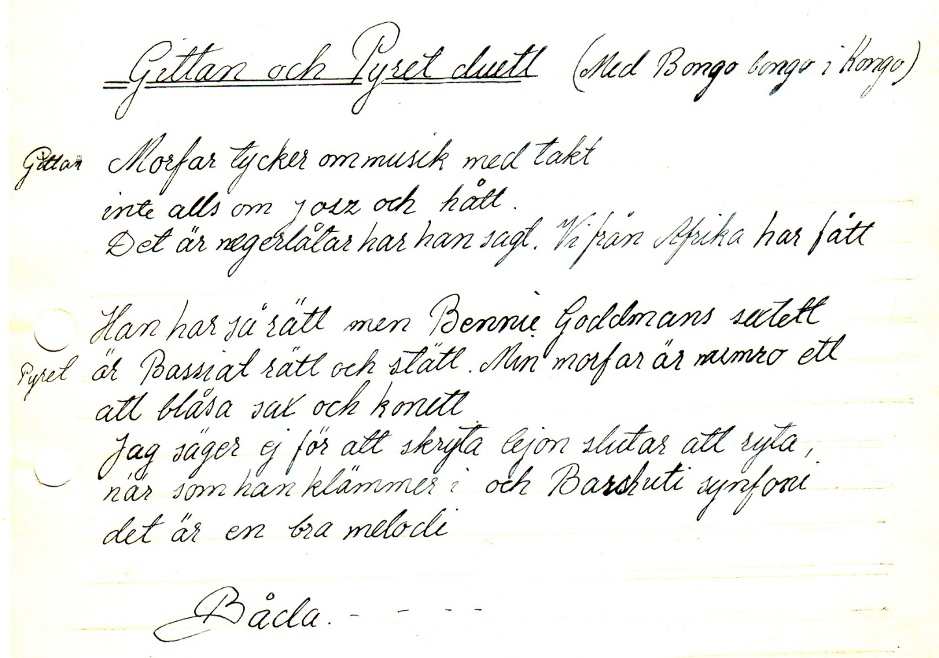 Gittan och Pyret duett (Med Bongo bongo i Kongo)
Gittan Morfar tycker om musik med takt
inte alls om jazz och hått.
Det är negerlåtar har han sagt. Vi från Afrika har fått
Han har så rätt men Bennie Goddmans sextett
Pyret är Bassial rätt och stätt. Min morfar är numro ett
att blåsa sax och konett
Jag säger ej för att skryta lejon slutar att ryta,
när som han klämmer i och synfoni
det är en bra melodi
Båda. - - - -